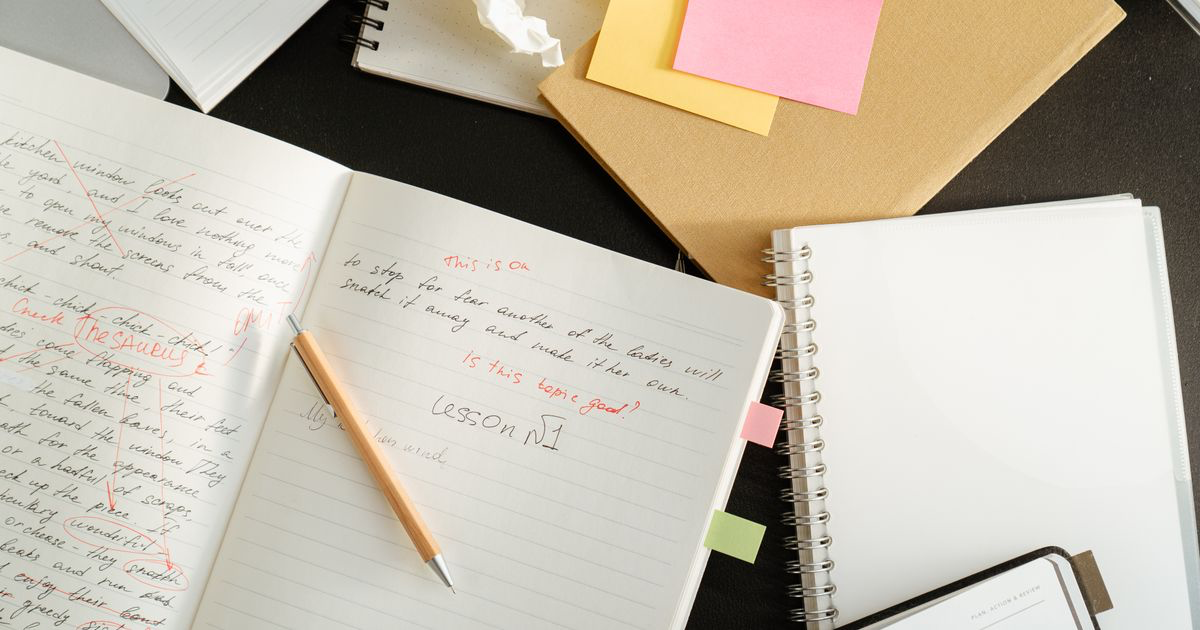 kitchen window looks out over the
yard and I love nothing more
to open my windows in fall once
remove the screens from the
and shout.
chick-chick-chick-chick!
OMIT
Check Thesaurus
come flapping and
the same time, their feet
the fallen leaves, in a
toward the window. They
for the appearance
or a handful of scraps,
up the piece. If
wonderful
or cheese - they snatch
beaks and run and
enjoy their
greedy
This is OK
to stop for fear another of the ladies will
snatch it away and make it her own.
Is this topic good?
Lesson №1
My kitchen windo
PLAN, ACTION & REVIEW